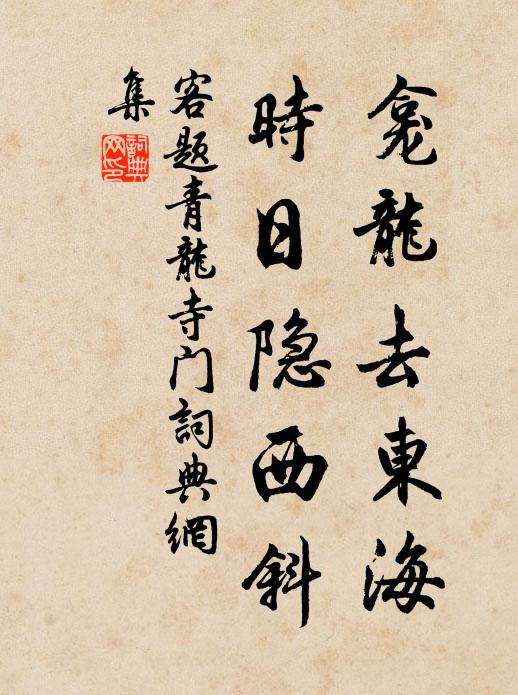 龛龍去東海
時日隐西斜
客题青龍寺门詞典網
集
詞典網印